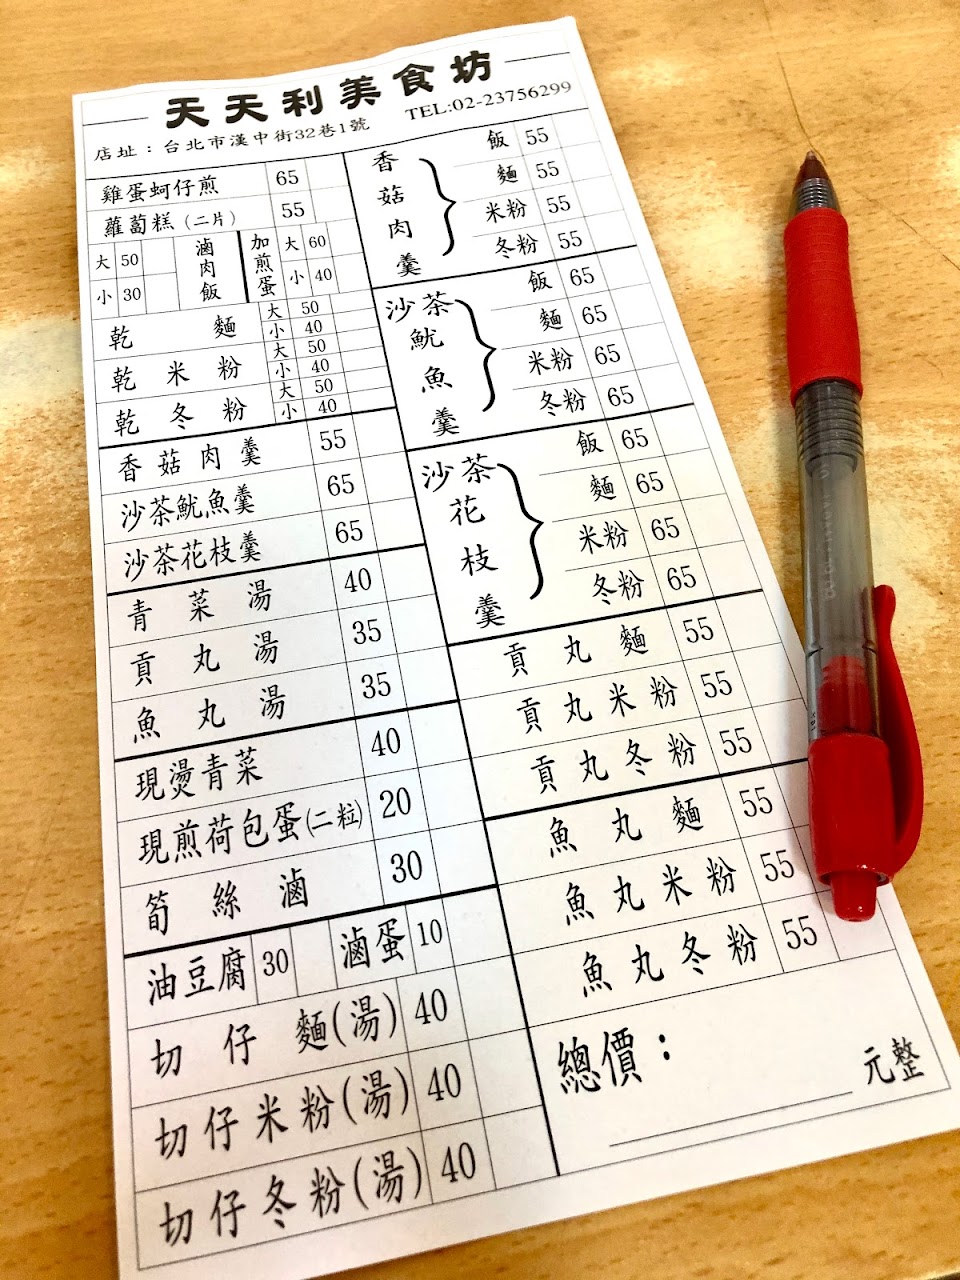 天天利美食坊
店址：台北市漢中街32巷1號 TEL:02-23756299
雞蛋蚵仔煎 65
蘿蔔糕（二片） 55
滷肉飯 大 50 小 30
加煎蛋 大 60 小 40
乾麵 大 50 小 40
乾米粉 大 50 小 40
乾冬粉 大 50 小 40
香菇肉羹 55
沙茶魷魚羹 65
沙茶花枝羹 65
青菜湯 40
貢丸湯 35
魚丸湯 35
現燙青菜 40
現煎荷包蛋(二粒) 20
筍絲滷 30
油豆腐 30 滷蛋 10
切仔麵(湯) 40
切仔米粉(湯) 40
切仔冬粉(湯) 40
香菇肉羹
飯 55
麵 55
米粉 55
冬粉 55
沙茶魷魚羹
飯 65
麵 65
米粉 65
冬粉 65
沙茶花枝羹
飯 65
麵 65
米粉 65
冬粉 65
貢丸麵 55
貢丸米粉 55
貢丸冬粉 55
魚丸麵 55
魚丸米粉 55
魚丸冬粉 55
總價：
元整